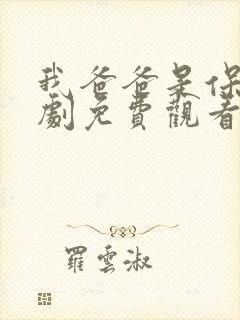 我爸爸呆保
劇免費觀看
羅雲淑